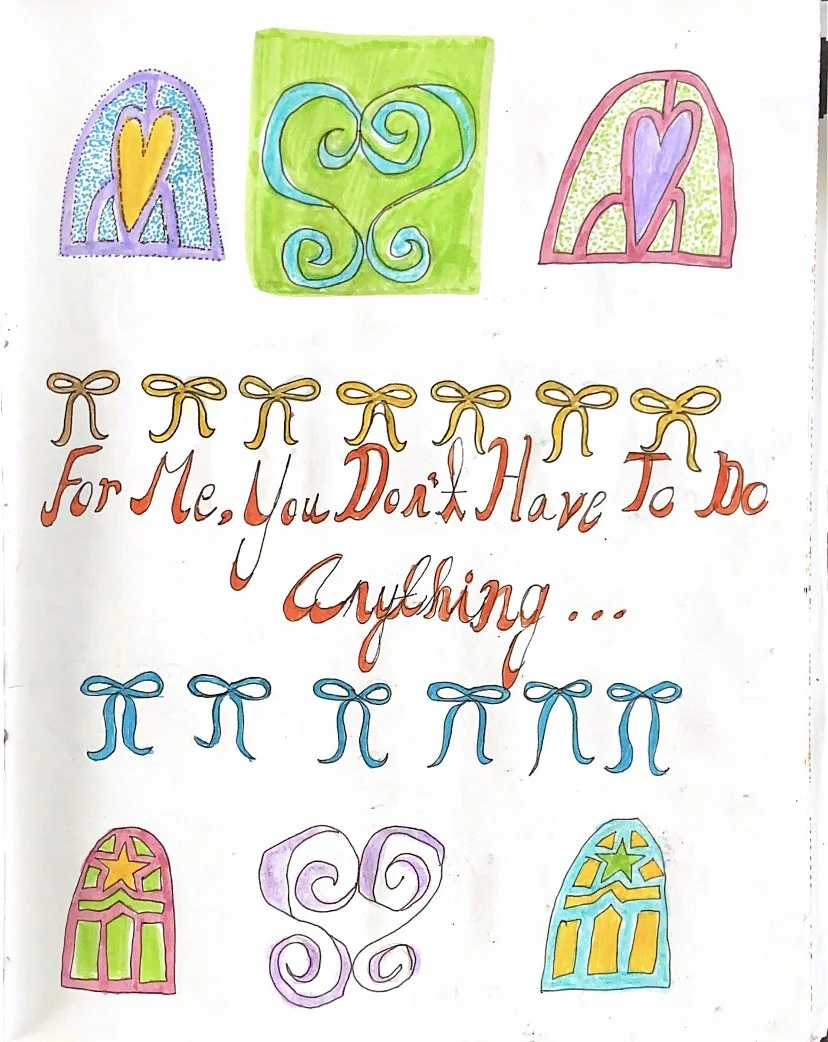 For Me, You Don't Have To Do
Anything...